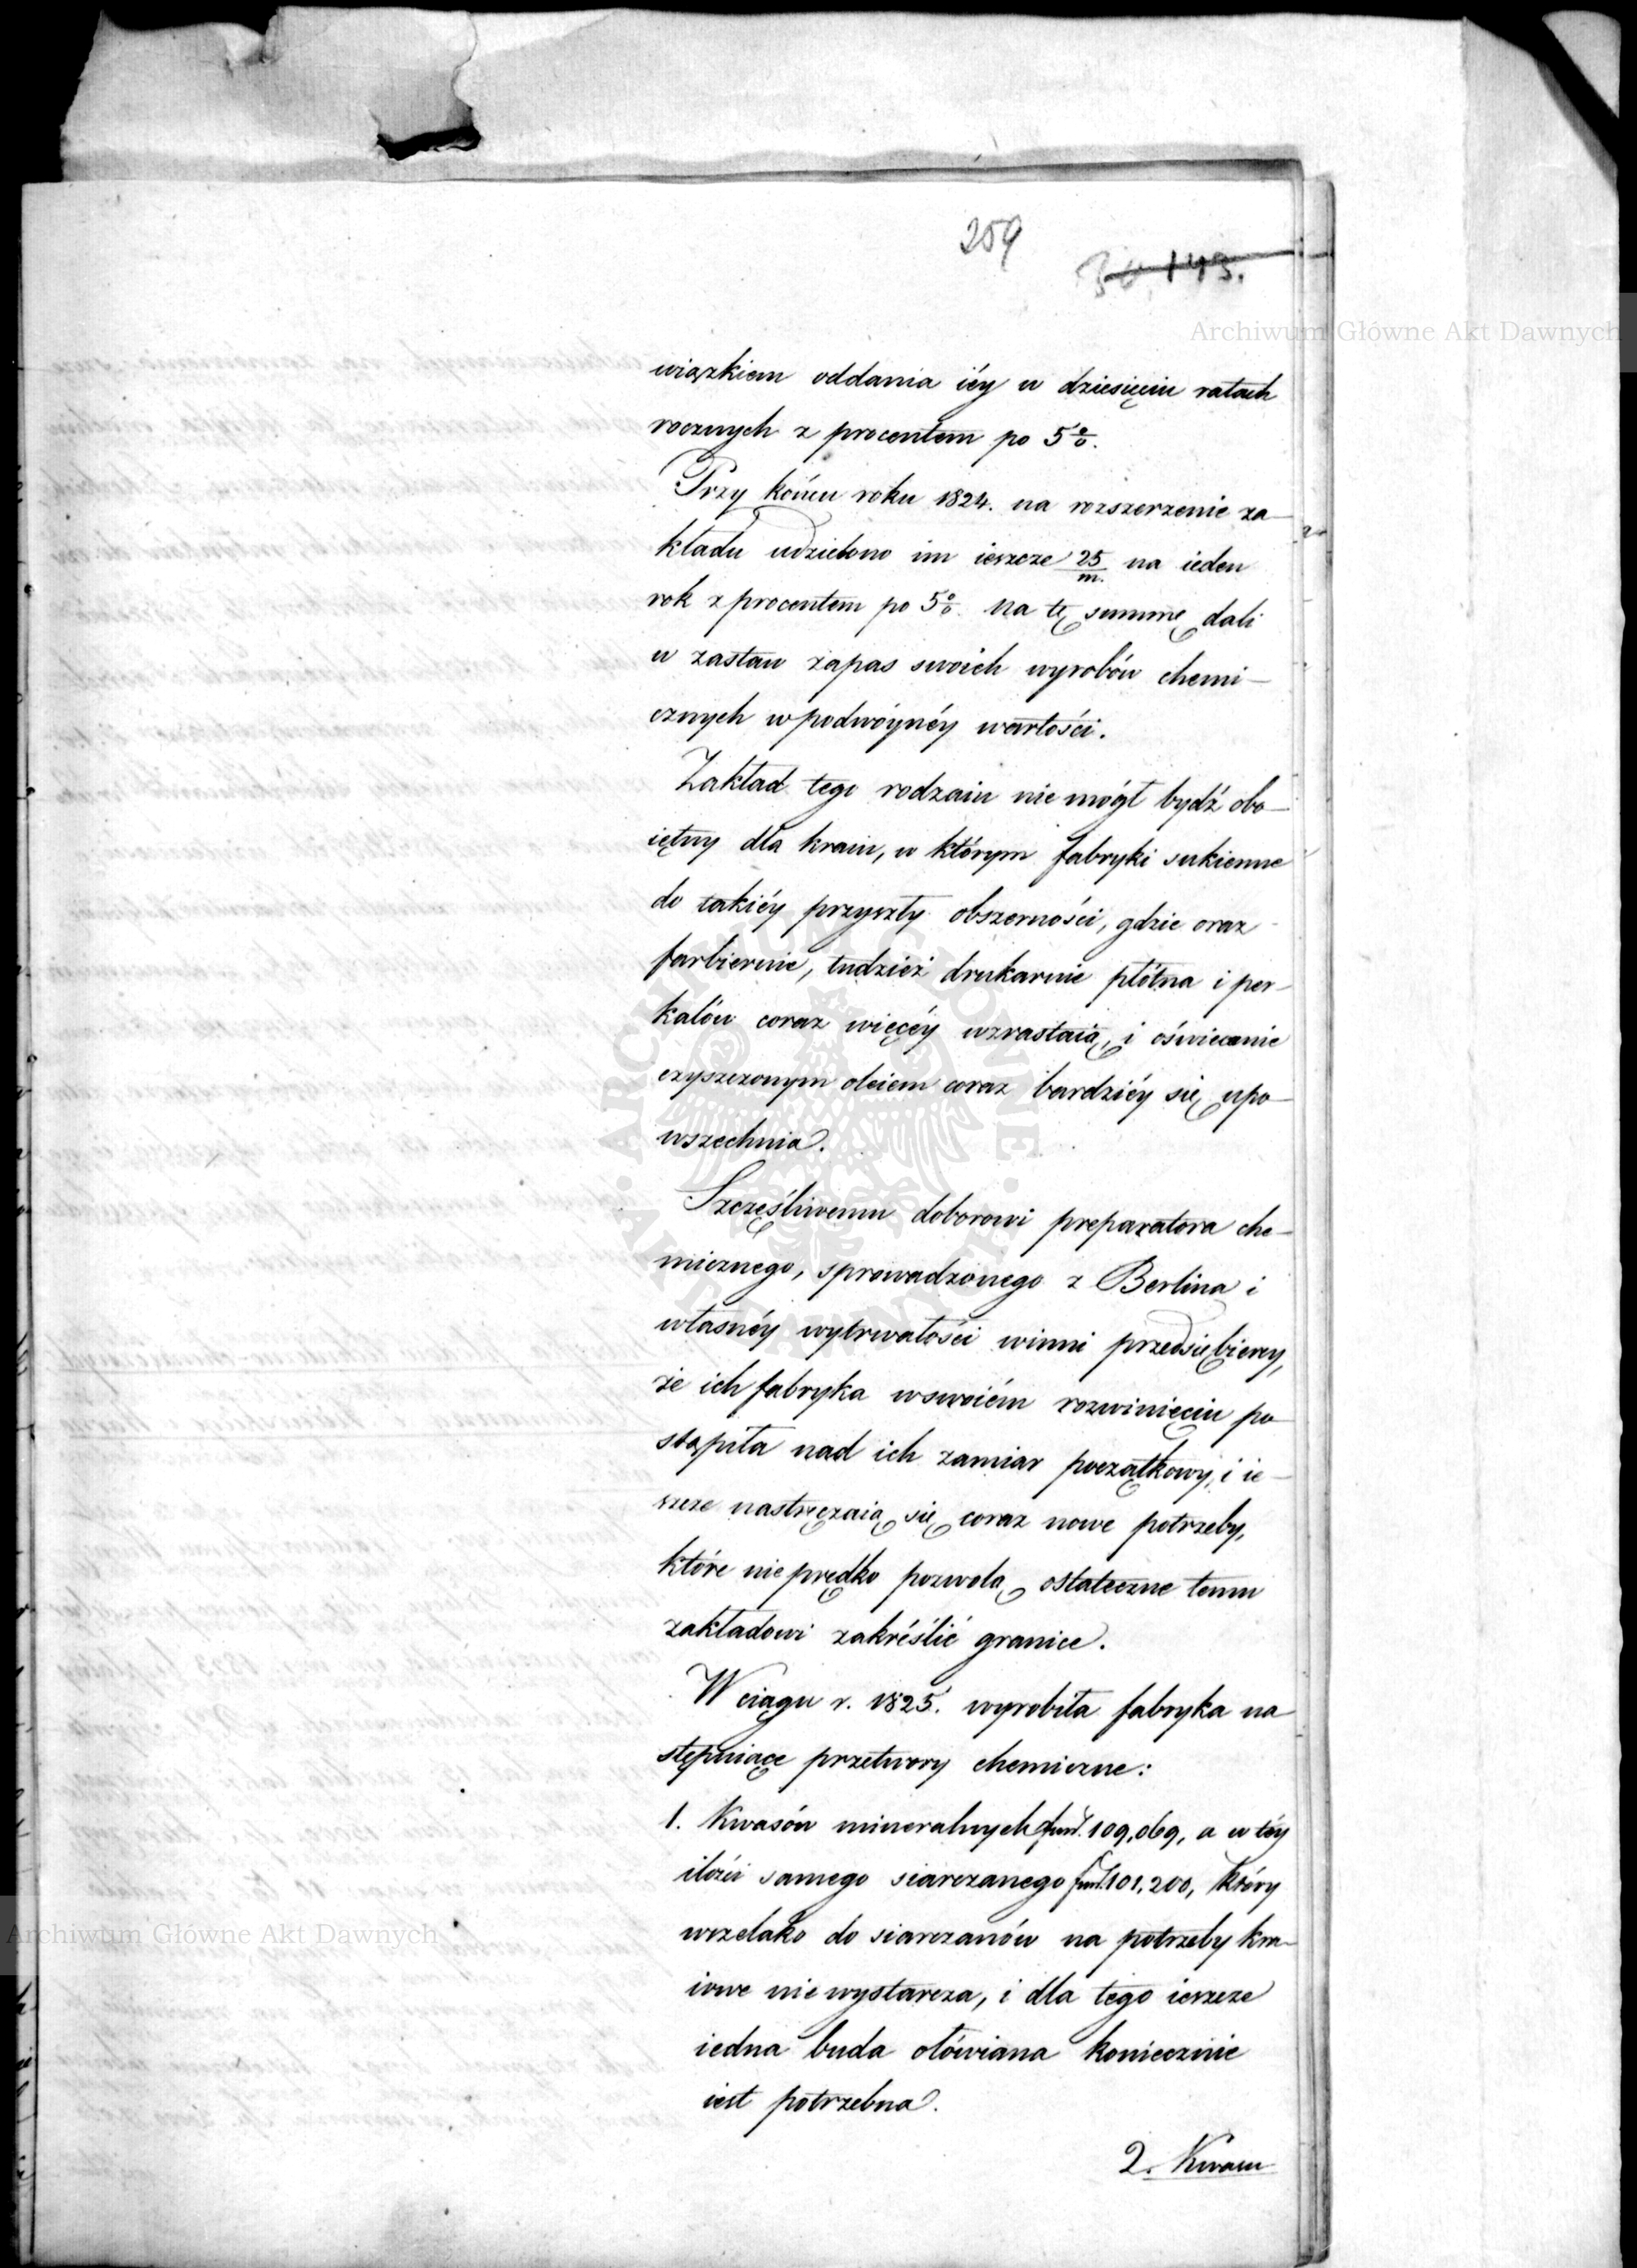 259
30. 143.
Archiwum Główne Akt Dawnych
wiązkiem oddania iéy w dziesięciu ratach
rocznych z procentem po 5 0/0.
Przy końcu roku 1824. na rozszerzenie za-
kładu udzielono im ieszcze 25/m. na ieden
rok z procentem po 5 0/0. Na tę summę dali
w zastaw zapas swoich wyrobów chemi-
cznych w podwóynéy wartości.
Zakład tego rodzaiu nie mógł bydź obo-
iętny dla kraiu, w którym fabryki sukienne
do takiéy przyszły obszerności, gdzie oraz
farbiernie, tudzież drukarnie płótna i per-
kalów coraz więcéy wzrastaią, i oświecanie
czyszczonym oleiem coraz bardziéy się upo-
wszechnia.
Szczęśliwemu doborowi preparatora che-
micznego, sprowadzonego z Berlina i
własnéy wytrwałości winni przedsiębiercy,
że ich fabryka w swoiém rozwinięciu po-
stąpiła nad ich zamiar początkowy, i ie-
szcze nastręczaią się coraz nowe potrzeby,
które nie prędko pozwolą ostateczne temu
zakładowi zakréślić granice.
W ciągu r. 1825. wyrobiła fabryka na-
stępuiące przetwory chemiczne:
1. Kwasów mineralnych funt. 109,069, a w téy
ilości samego siarczanego funt. 101,200, który
wszelako do siarczanów na potrzeby kra-
iowe nie wystarcza, i dla tego ieszcze
iedna buda ołówiana koniecznie
iest potrzebna.
2. Kwasu
ARCHIWUM GŁÓWNE AKT DAWNYCH
Archiwum Główne Akt Dawnych